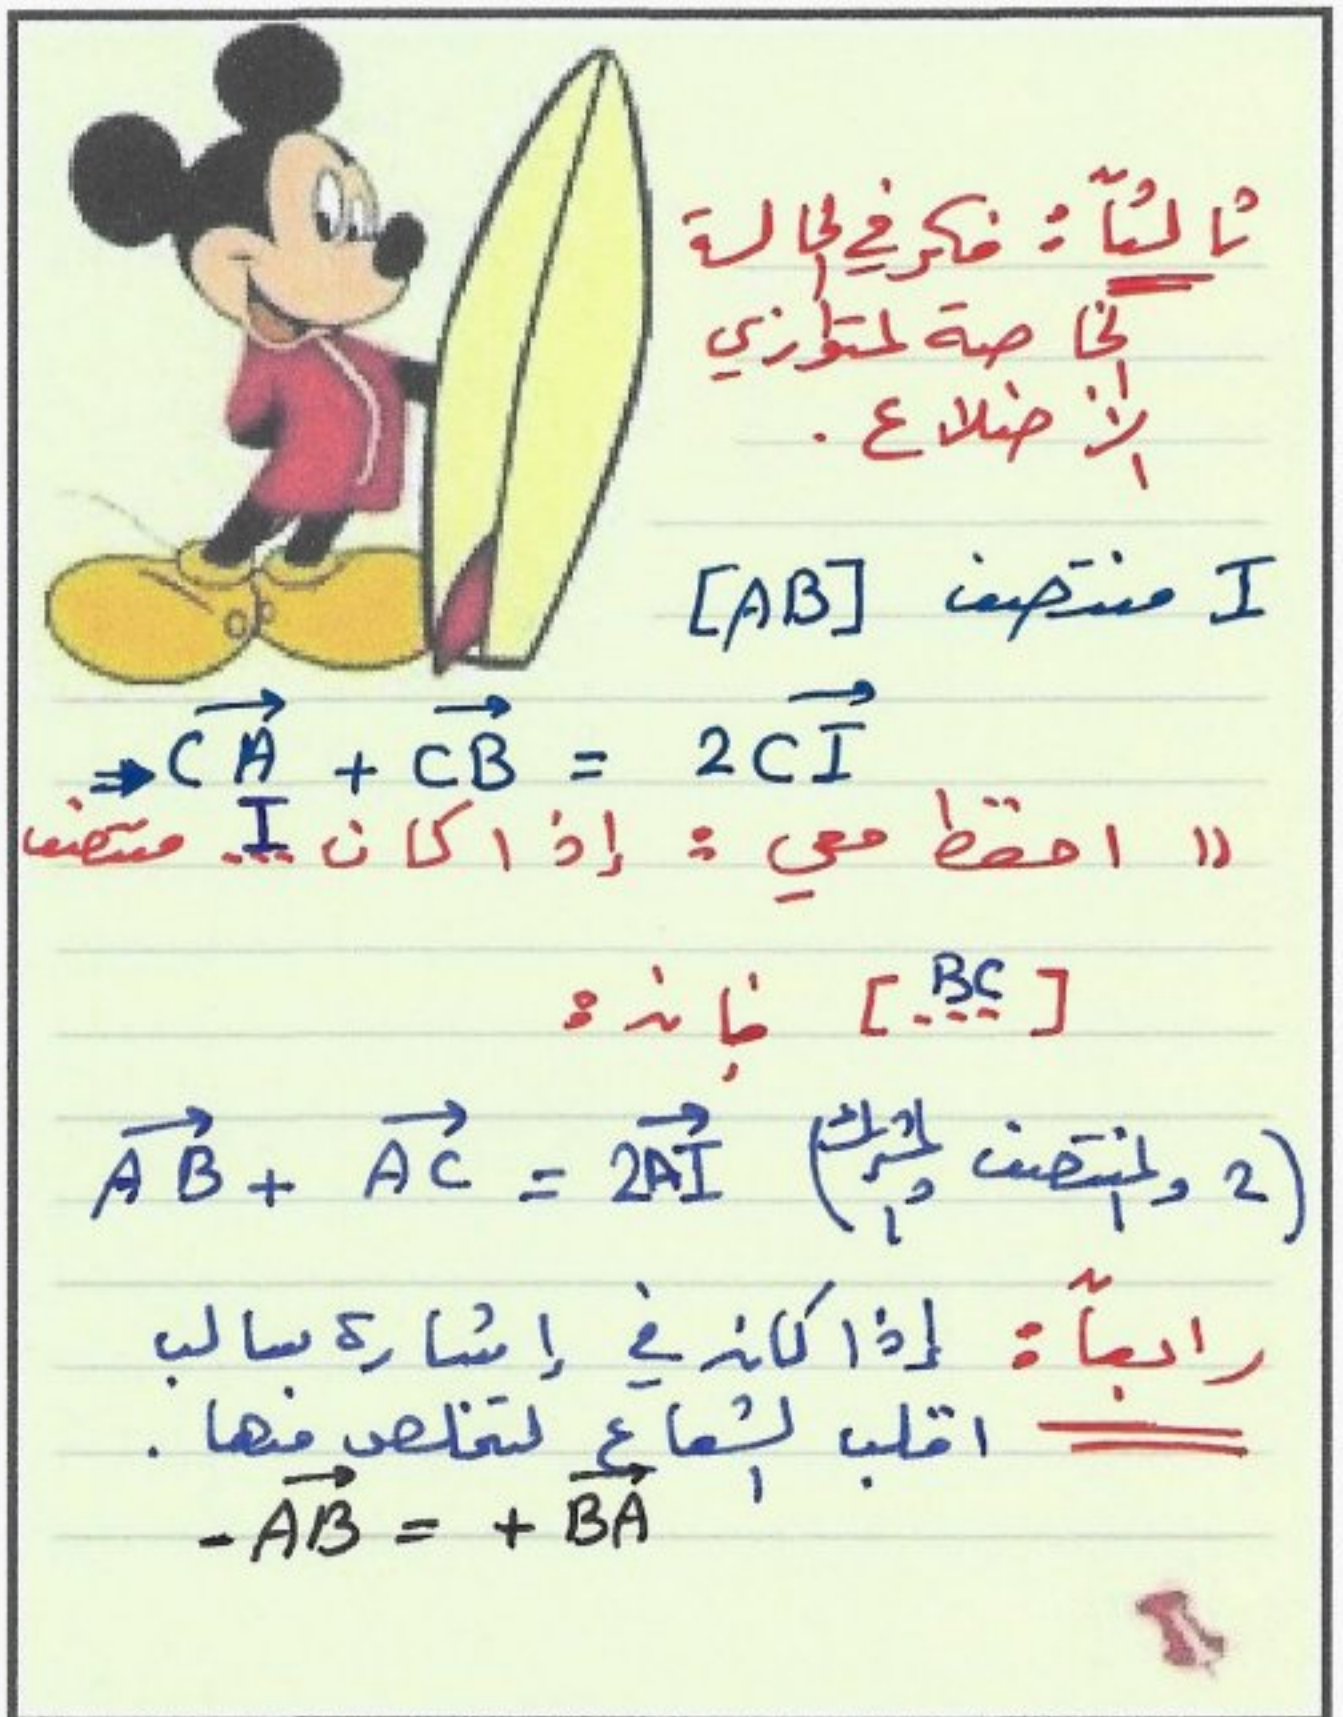 ثالثاً : فكر في الحالة
الخاصة لمتوازي
الأضلاع .
I منتصف [AB]
⇒ CA + CB = 2CI
" احفظ معي : إذا كان ... I منتصف
[BC ...] فإن :
AB + AC = 2AI (2 والمنتصف والمشترك)
رابعاً : إذا كان في إشارة سالب
اقلب الشعاع لتخلص منها .
- AB = + BA